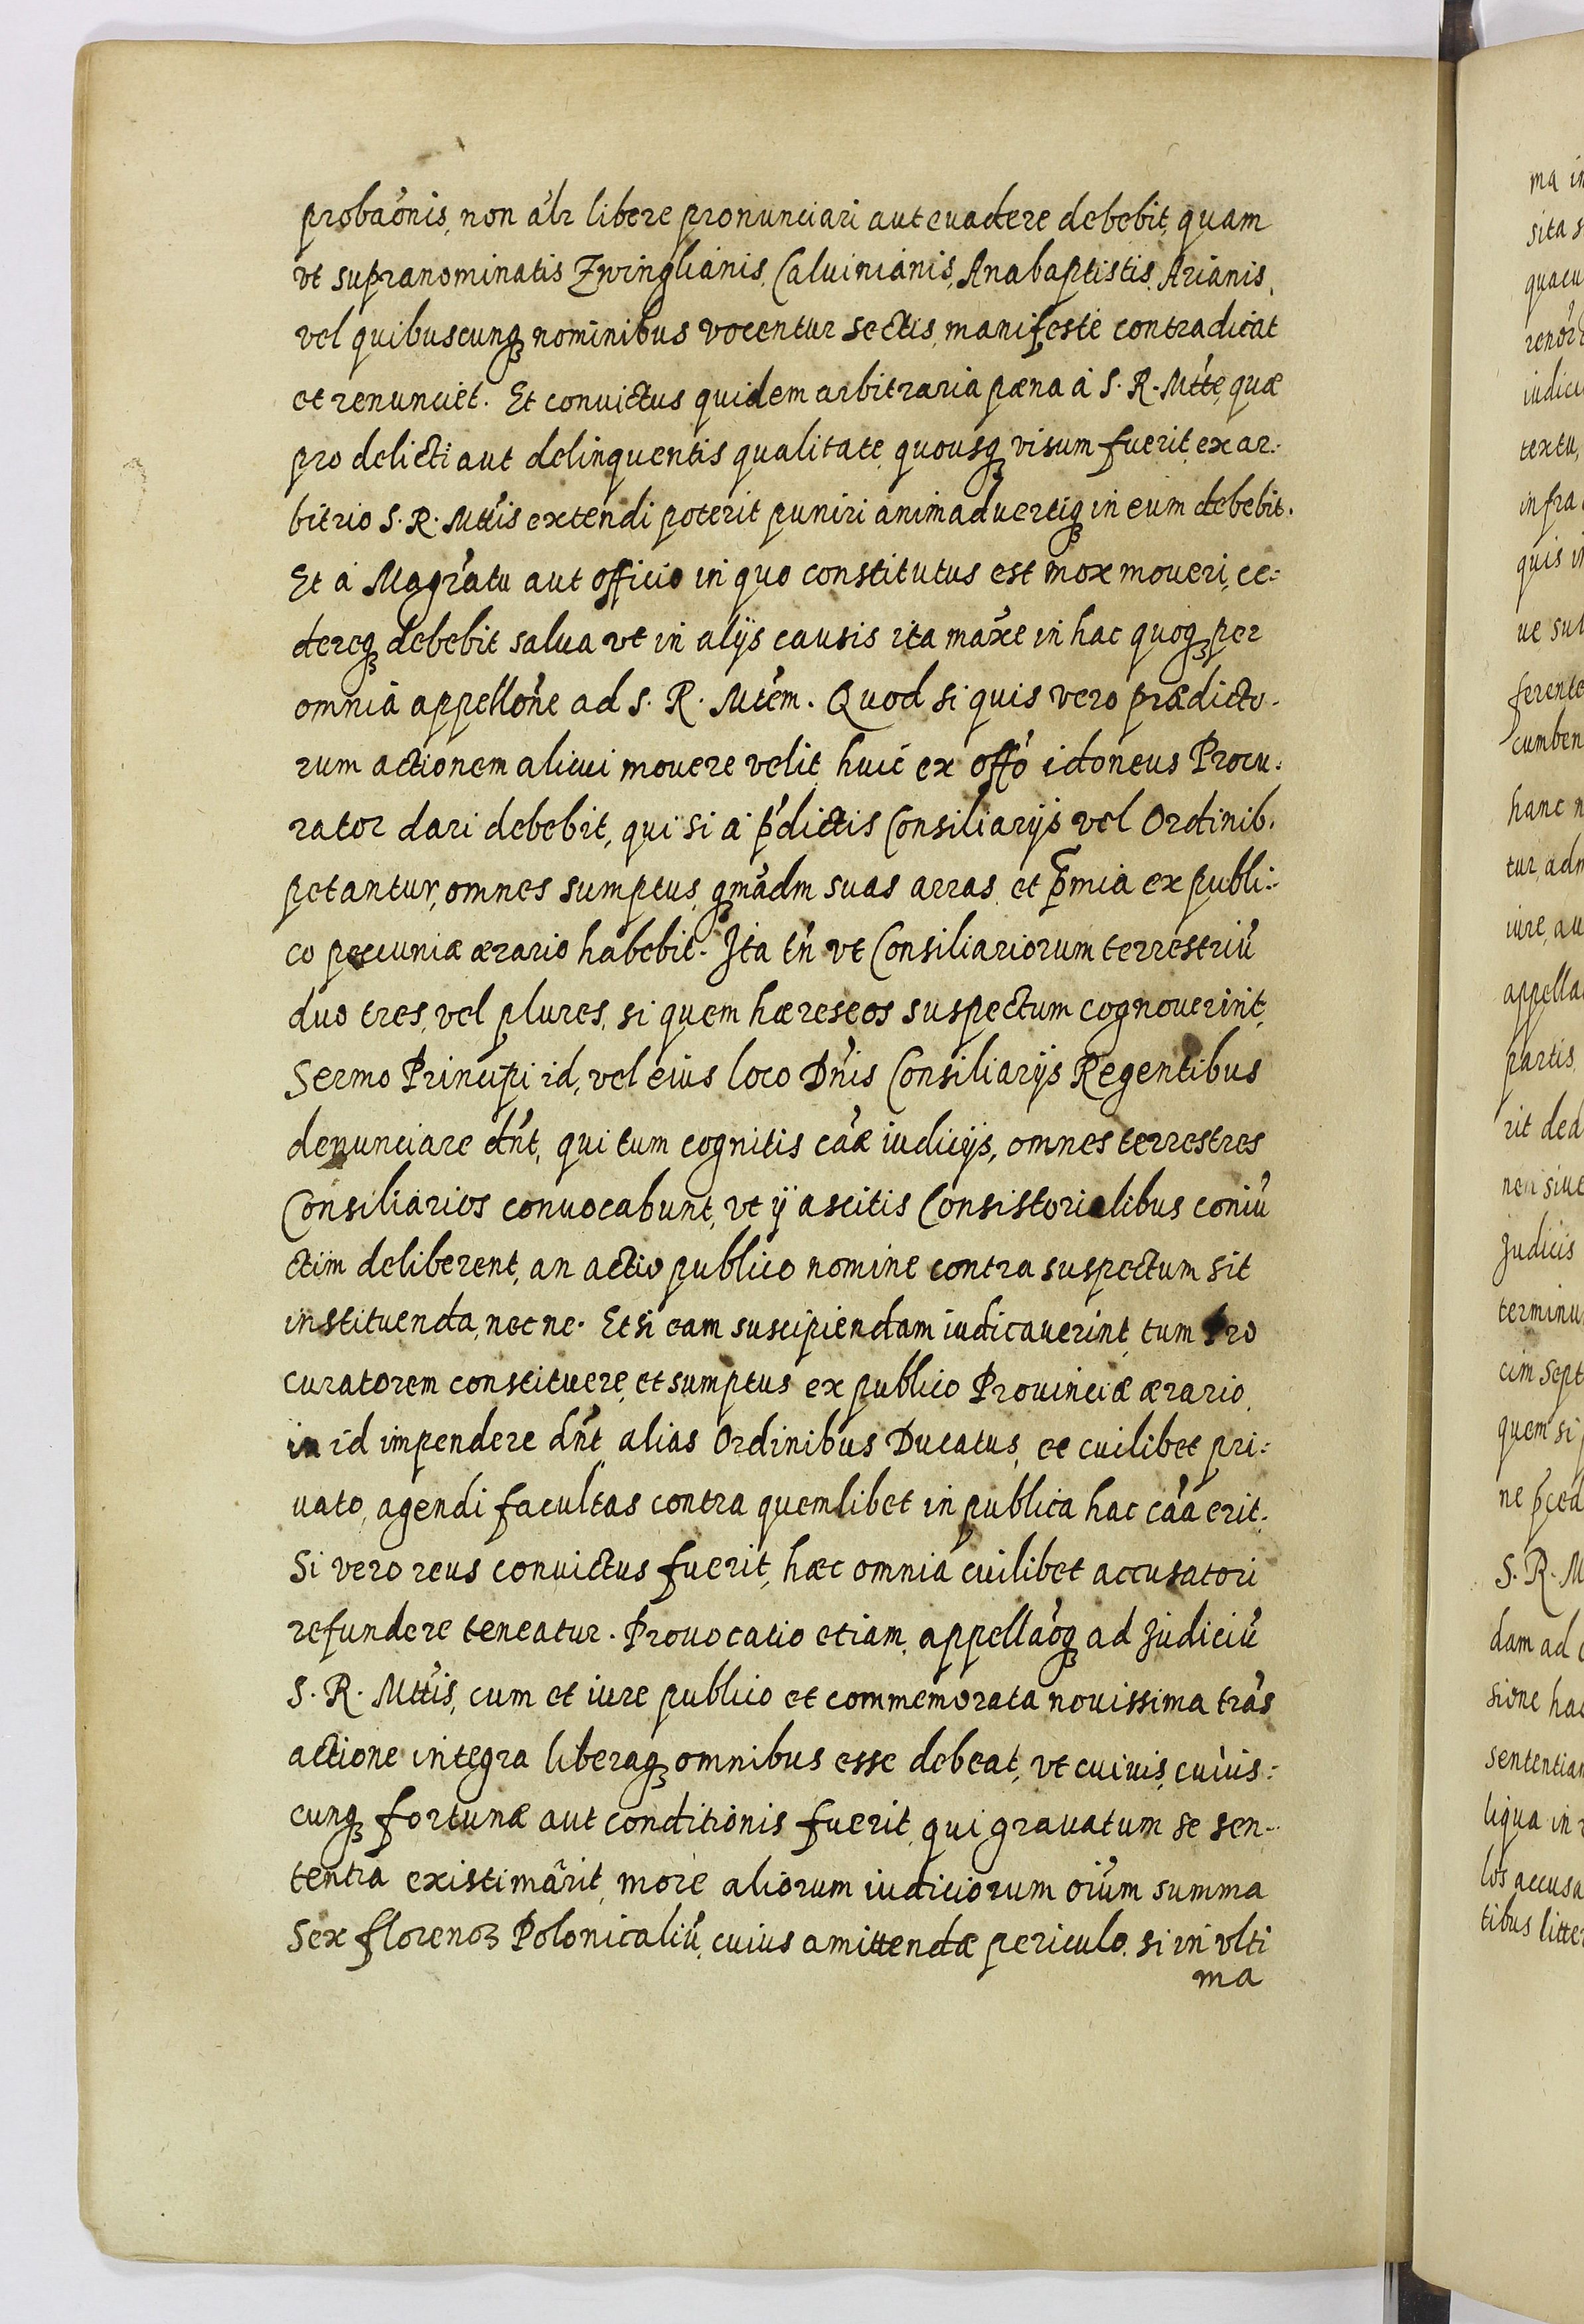 probaónis, non ál'r libere pronunciari aut euadere debebit, quam
vt supranominatis Zwinglianis, Caluinianis, Anabaptistis, Arianis,
vel quibuscunq₃ nominibus vocentur sectis, manifesté contradicat
et renunciet. Et convictus quidem arbitraria pæna á S. R. Mtte, quæ
pro delicti aut delinquentis qualitate, quousq₃ visum fuerit, ex ar:
bitrio S. R. Mttis extendi poterit puniri animaduertiq₃ in eum debebit.
Et á Magr̃atu aut officio in quo constitutus est mox moueri, ce:
dereq₃ debebit salua vt in alijs causis ita maxe in hac quoq₃ per
omnia appellone ad S. R. Mtem. Quod si quis vero prædicto-
rum actionem alicui mouere velit, huic ex offo idoneus Procu:
rator dari debebit, qui si á p̃dictis Consiliarijs vel Ordinib.
petantur, omnes sumptus, q₃mádm suas arras, et p̃mia ex publi:
co pecuniæ ærario habebit. Ita tn̄ vt Consiliariorum terrestriū
duo tres, vel plures, si quem hæreseos suspectum cognouerint,
Sermo Principi id, vel eius loco Dn̄is Consiliarijs Regentibus
denunciare dn̄t, qui tum cognitis cáæ iudicijs, omnes terrestres
Consiliarios convocabunt, vt ij ascitis Consistorialibus coniū
ctim deliberent, an actio publico nomine contra suspectum sit
instituenda, nec ne. Et si eam suscipiendam iudicauerint, tum Pro
curatorem constituere, et sumptus ex publico Prouinciæ ærario,
in id impendere dn̄t, alias Ordinibus Ducatus, et cuilibet pri:
uato, agendi facultas contra quemlibet in publica hac cáa erit.
Si vero reus convictus fuerit, hæc omnia cuilibet accusatori
refundere teneatur. Prouocatio etiam, appellaóq₃ ad Judiciū
S. R. Mttis, cum et iure publico et commemorata nouissima trās
actione integra liberaq₃ omnibus esse debeat, vt cuiuis, cuius:
cunq₃ fortunæ aut conditionis fuerit, qui grauatum se sen-
tentia existimârit, more aliorum iudiciorum oium summa
Sex florenoꝝ Polonicaliū, cuius amittendæ periculo, si in vlti
ma
ma in
sita s
quacu
renor
iudici
textu,
infra
quis in
ue sul
ferente
cumben
hanc n
tur, adm
iure, au
appella
partis,
rit ded
nen siue
Judicis
terminu
cim Sept
quem si p
ne p̃ced
S. R. M
dam ad c
sione hac
sententiam
liqua in
los accusa
tibus litter